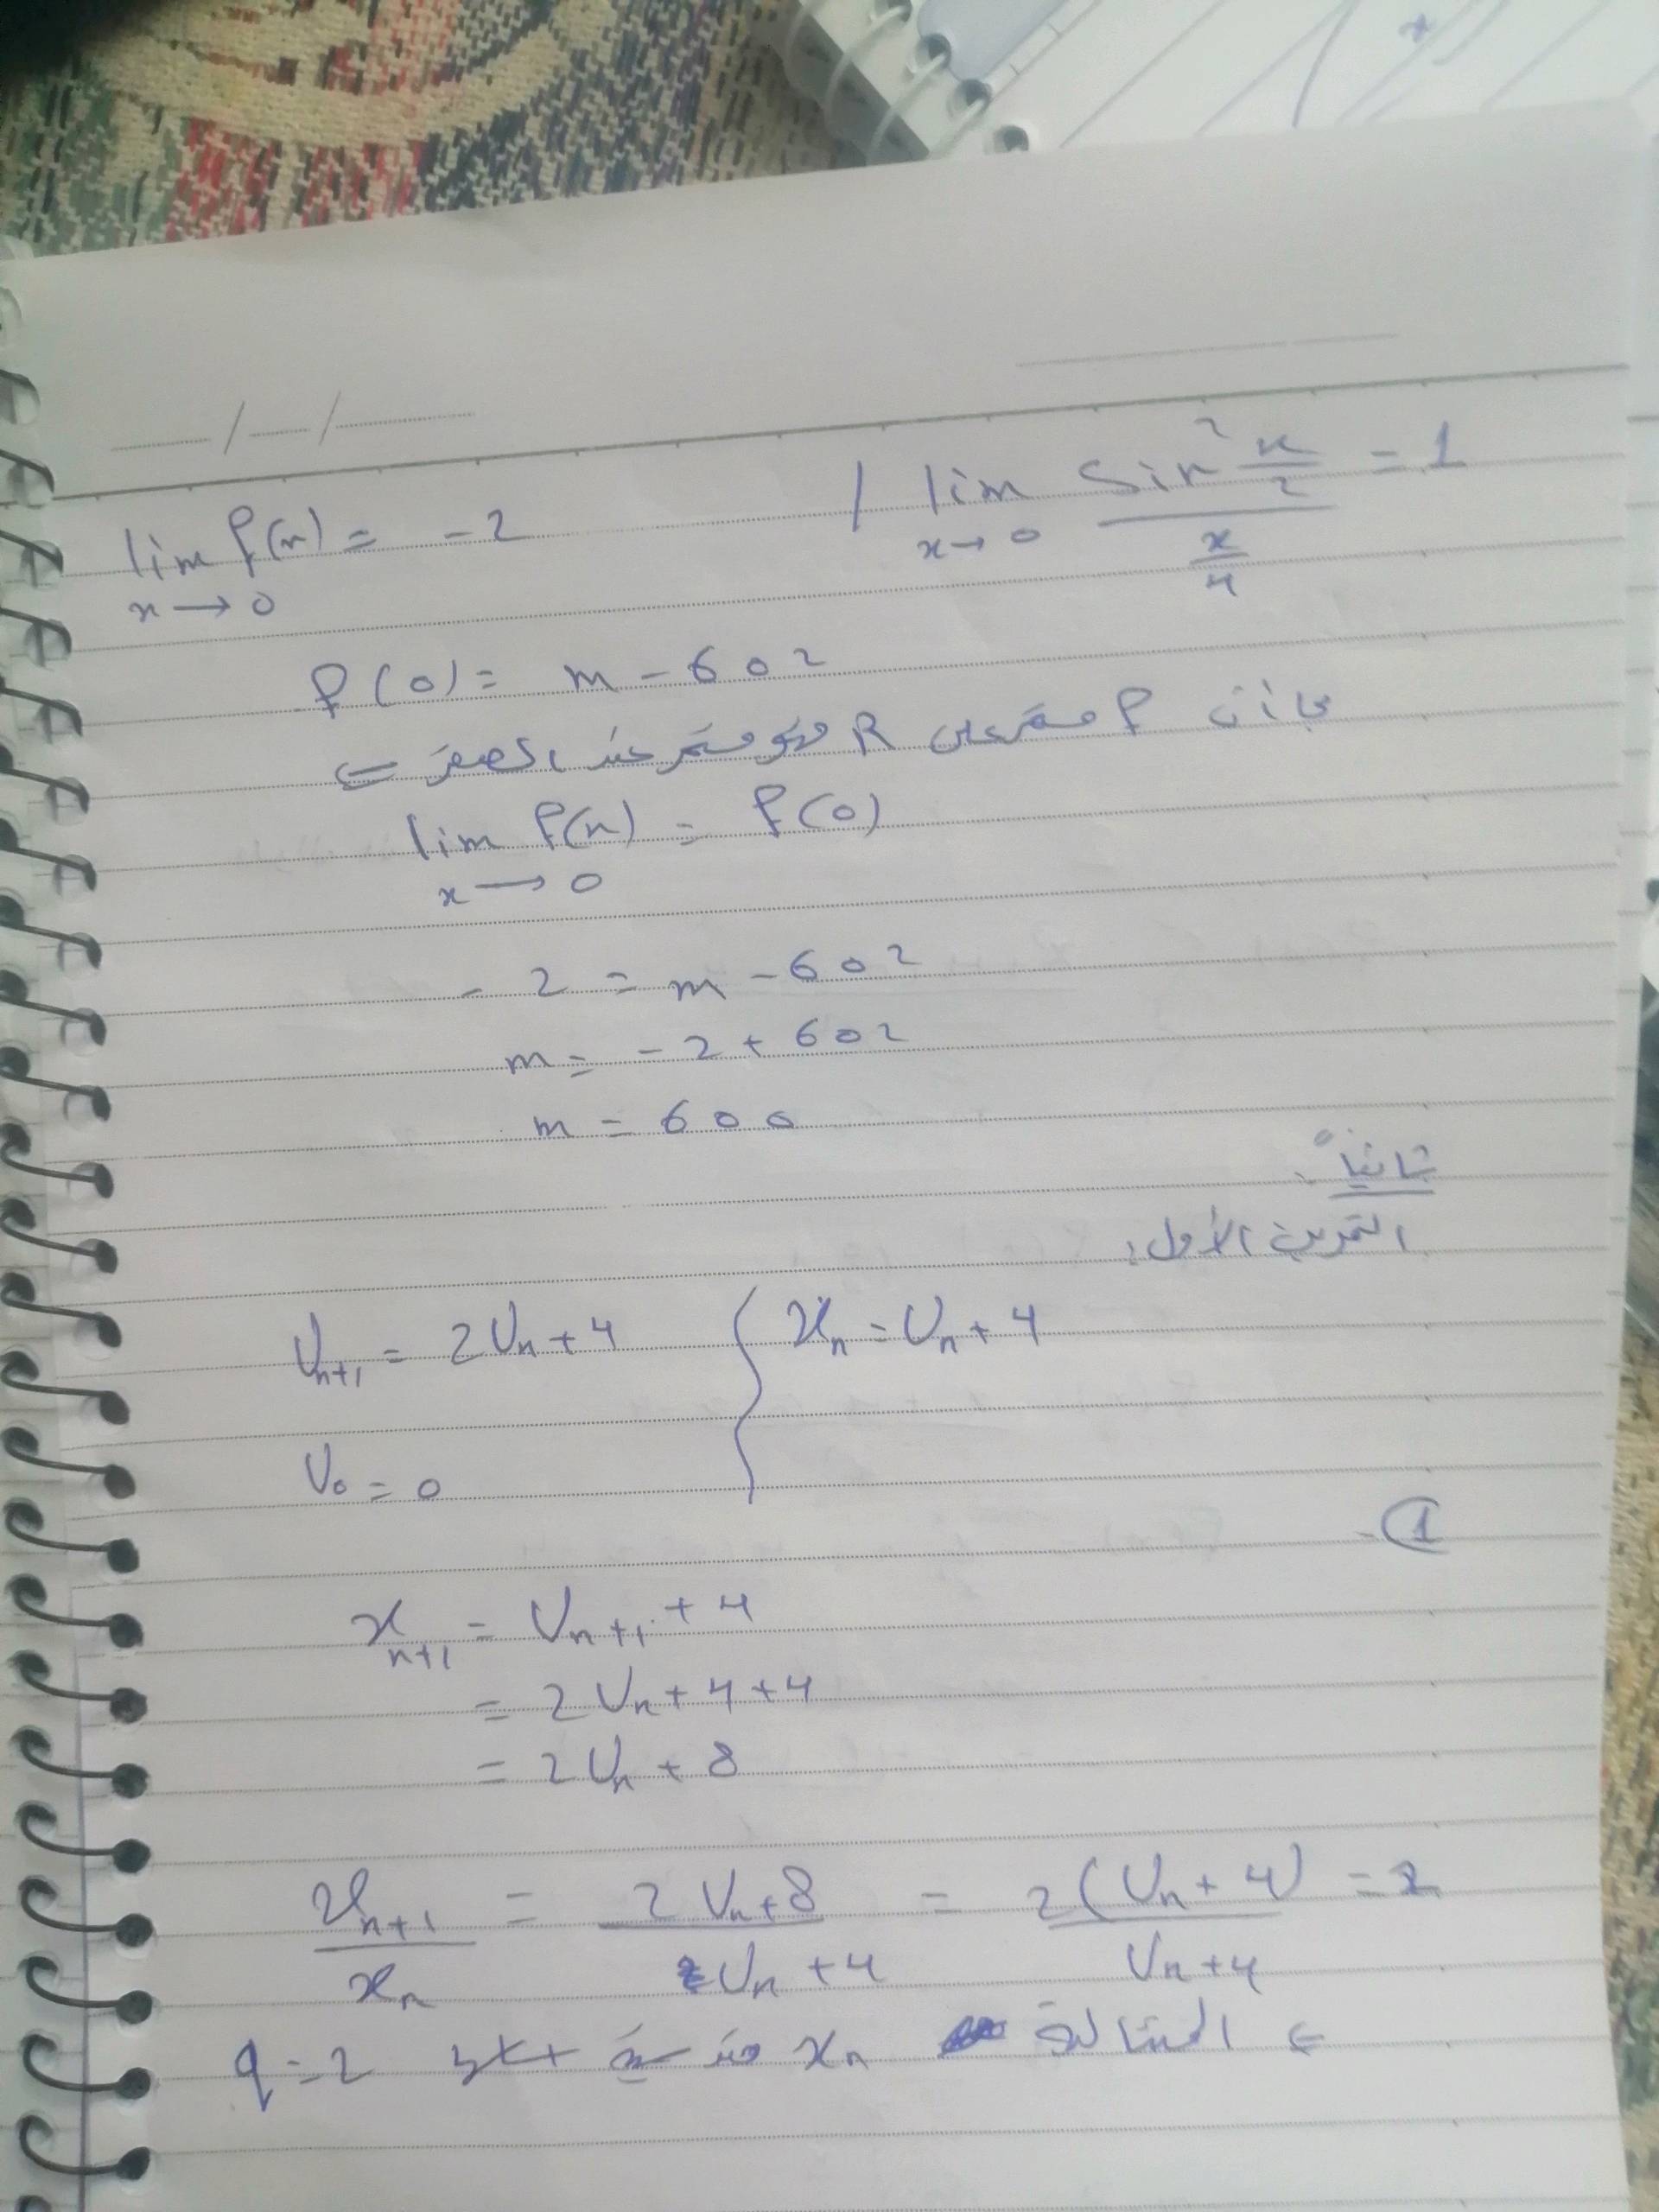 lim f(x) = -2 / lim sin² x/2 / x/4 = 1
x → 0 x → 0
f(0) = m - 602
بما أن f مستمر على R فهو مستمر عند الصفر ⇐
lim f(x) = f(0)
x → 0
- 2 = m - 602
m = - 2 + 602
m = 600
ثانياً:
التمرين الأول:
Un+1 = 2Un + 4 { xn = Un + 4
U0 = 0
1 -
xn+1 = Un+1 + 4
= 2Un + 4 + 4
= 2Un + 8
xn+1 / xn = 2Un + 8 / Un + 4 = 2(Un + 4) / Un + 4 = 2
⇐ المتتالية xn هندسية q = 2